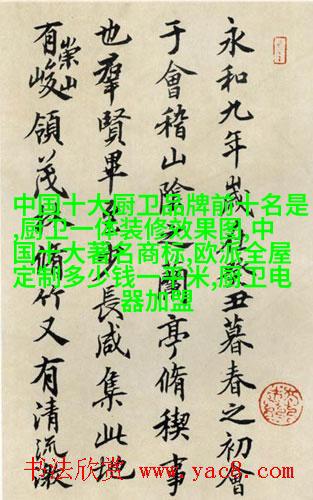 永和九年歲在癸丑暮春之初會
于會稽山陰之蘭亭脩稧事
也羣賢畢至少長咸集此地
有崇山峻領茂林脩竹又有清流激
中国十大厨卫品牌前十名是
,厨卫一体装修效果图,中
国十大著名商标,欧派全屋
定制多少钱一平米,厨卫电
器加盟
书法欣赏 www.yac8.com